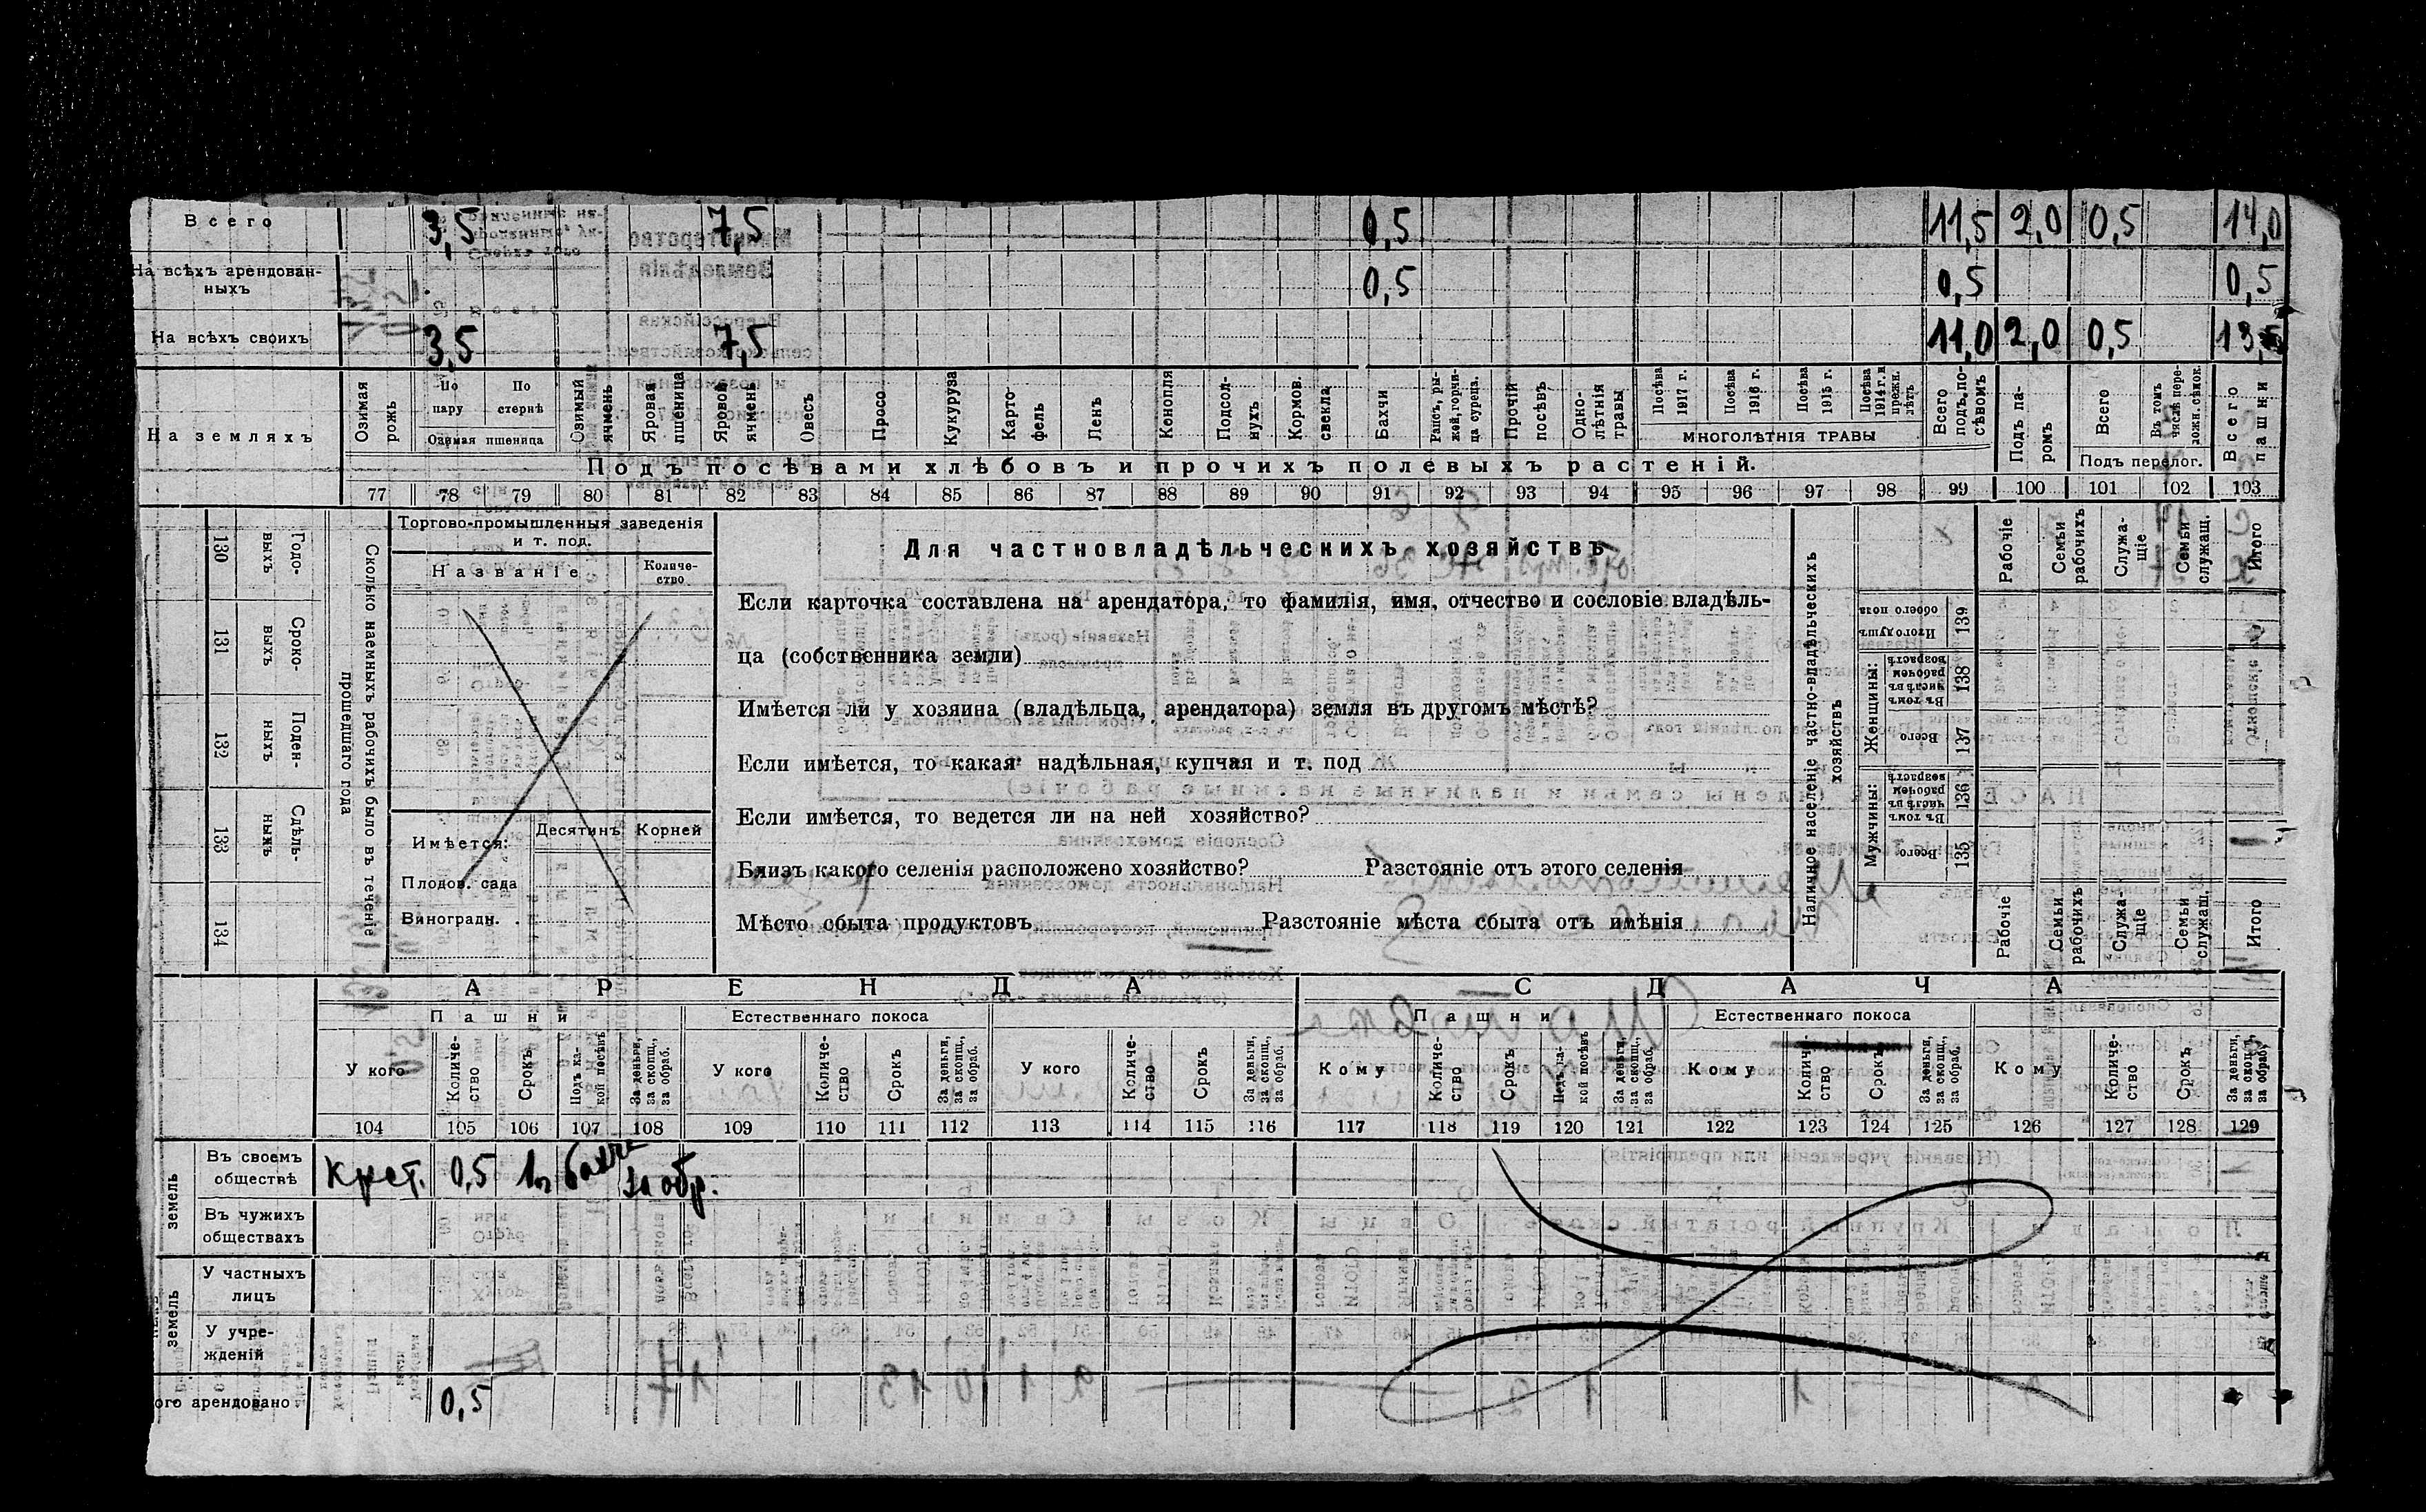 Всего 3,5 7,5 0,5 11,5 2,0 0,5 14,0
На всѣхъ арендован-
ныхъ 0,5 0,5 0,5
На всѣхъ своихъ 3,5 7,5 11,0 2,0 0,5 13,5
На земляхъ
Озимая рожь
По пару
По стернѣ
Озимая пшеница
Озимый ячмень
Яровая пшеница
Яровой ячмень
Овесъ
Просо
Кукуруза
Карто-
фель
Ленъ
Конопля
Подсол-
нухъ
Кормов.
свекла
Бахчи
Рапсъ, ры-
жей, горчи-
ца сурепа.
Прочій
посѣвъ
Одно-
лѣтнія
травы
Посѣва
1917 г.
Посѣва
1916 г.
Посѣва
1915 г.
Посѣва
1914 г. и
прежн.
лѣтъ
МНОГОЛѢТНІЯ ТРАВЫ
Всего
подъ по-
сѣвомъ
Подъ па-
ромъ
Всего
Въ томъ
числѣ пере-
ложн. сѣнок.
Подъ перелог.
Всего
пашни
Подъ посѣвами хлѣбовъ и прочихъ полевыхъ растеній.
77 78 79 80 81 82 83 84 85 86 87 88 89 90 91 92 93 94 95 96 97 98 99 100 101 102 103
130 Годо-
выхъ
131 Сроко-
выхъ
132 Поден-
ныхъ
133 Сдѣль-
ныхъ
134
Сколько наемныхъ рабочихъ было въ теченіе
прошедшаго года
Торгово-промышленныя заведенія
и т. под.
Названіе
Количе-
ство
Имѣется:
Десятинъ
Корней
Плодов. сада
Виноградн.
Для частновладѣльческихъ хозяйствъ
Если карточка составлена на арендатора, то фамилія, имя, отчество и сословіе владѣль-
ца (собственника земли)
Имѣется ли у хозяина (владѣльца, арендатора) земля въ другомъ мѣстѣ?
Если имѣется, то какая: надѣльная, купчая и т. под
Если имѣется, то ведется ли на ней хозяйство?
Близъ какого селенія расположено хозяйство? Разстояніе отъ этого селенія
Мѣсто сбыта продуктовъ Разстояніе мѣста сбыта отъ имѣнія
Наличное населеніе частно-владѣльческихъ
хозяйствъ
Рабочіе
Семьи
рабочихъ
Служа-
щіе
Семьи
служащ.
Итого
Итого душ
обоего пола
139
Женщины:
Въ томъ
числѣ въ
рабочемъ
возрастѣ
138
Всего
137
Мужчины:
Въ томъ
числѣ въ
рабочемъ
возрастѣ
136
Всего
135
Рабочіе
Семьи
рабочихъ
Служа-
щіе
Семьи
служащ.
Итого
АРЕНДА
СДАЧА
Пашни
Естественнаго покоса
Пашни
Естественнаго покоса
У кого
Количе-
ство
Срокъ
Подъ ка-
кой посѣвъ
За деньги,
за скопщ.,
за обраб.
У кого
Количе-
ство
Срокъ
За деньги,
за скопщ.,
за обраб.
У кого
Количе-
ство
Срокъ
За деньги,
за скопщ.,
за обраб.
Кому
Количе-
ство
Срокъ
Подъ ка-
кой посѣвъ
За деньги,
за скопщ.,
за обраб.
Кому
Количе-
ство
Срокъ
За деньги,
за скопщ.,
за обраб.
Кому
Количе-
ство
Срокъ
За деньги,
за скопщ.,
за обраб.
104 105 106 107 108 109 110 111 112 113 114 115 116 117 118 119 120 121 122 123 124 125 126 127 128 129
земель
Въ своемъ
обществѣ
Крест. 0,5 1 бахчи За обр.
Въ чужихъ
обществахъ
земель
У частныхъ
лицъ
У учре-
жденій
ого арендовано 0,5